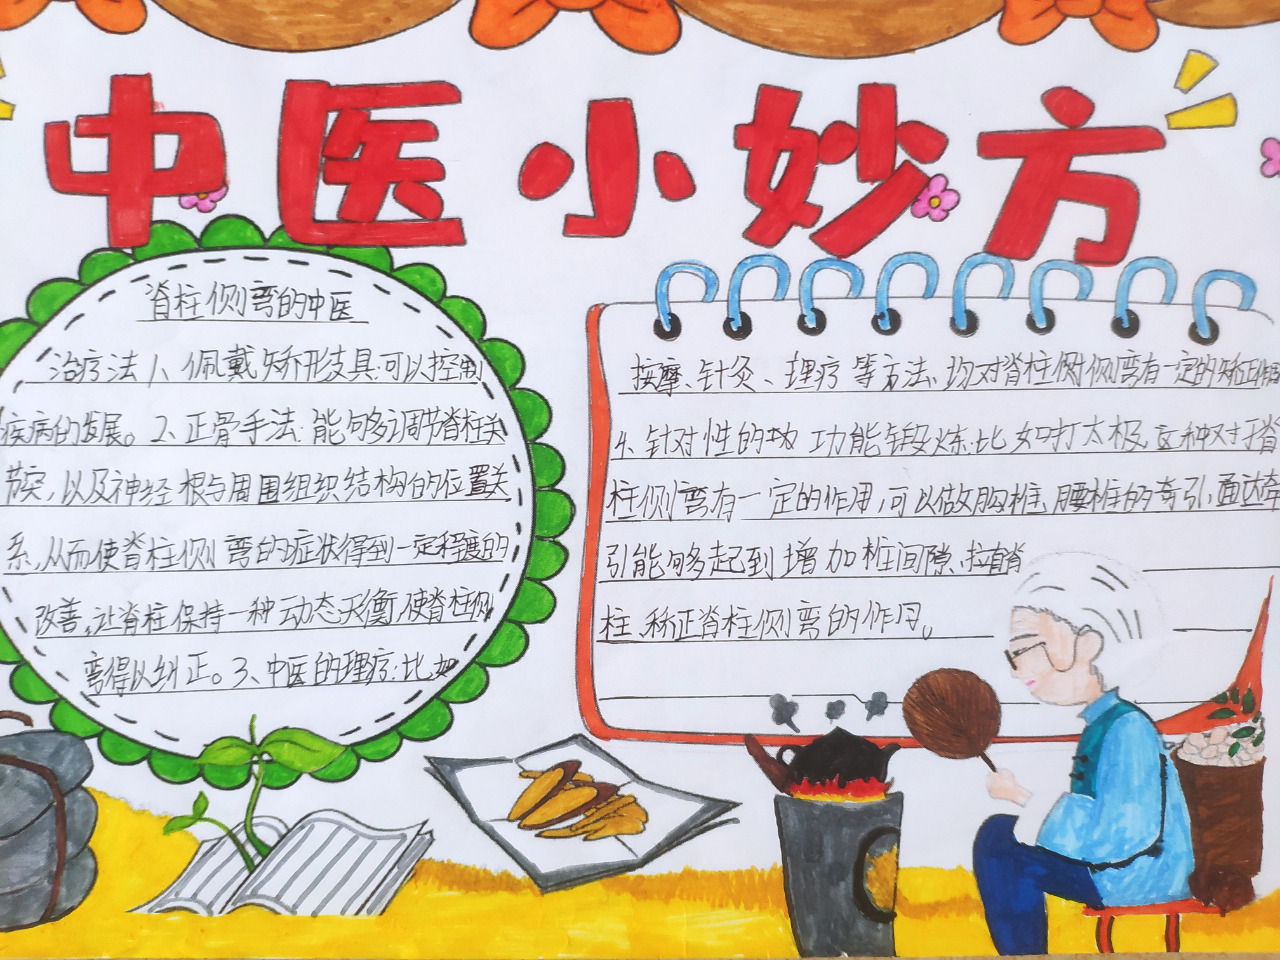 中医小妙方
脊柱侧弯的中医
治疗法1、佩戴矫形支具:可以控制
疾病的发展。2、正骨手法:能够多调节脊柱关
节突,以及神经根与周围组织结构的位置关
系,从而使脊柱侧弯的症状得到一定程度的
改善,让脊柱保持一种动态天衡,使脊柱侧
弯得以纠正。3、中医的理疗:比如
按摩、针灸、理疗等方法、均对脊柱侧侧弯有一定的矫正作用
4、针对性的功功能锻炼:比如打太极,这种对于脊
柱侧弯有一定的作用,可以做胸椎,腰椎的牵引,通达牵
引能够多起到增加椎间隙、拉直脊
柱,矫正脊柱侧弯的作用。